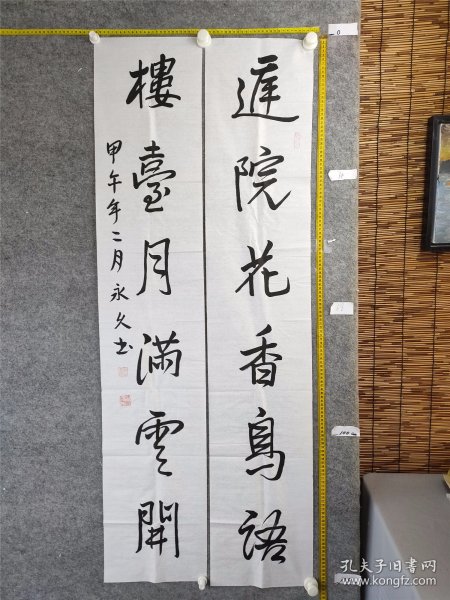 遲院花香鳥語
樓臺月滿雲開
甲午年二月永久书
0
100
孔夫子旧书网
www.kongfz.com